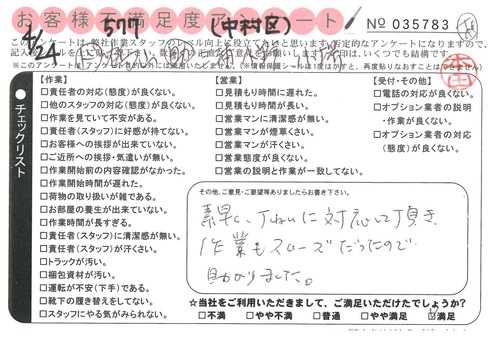 お客様不満足度アンケート
577 (中村区)
No 035783
4/24
このアンケートは、弊社作業スタッフのレベル向上に役立てたいと思います。否定的なアンケートになりますので、
チェックリスト
【作業】
□責任者の対応(態度)が良くない。
□他のスタッフの対応(態度)が良くない。
□作業を見ていて不安がある。
□責任者(スタッフ)に好感が持てない。
□お客様への挨拶が出来ていない。
□ご近所への挨拶・気遣いが無い。
□作業開始前の内容確認がなかった。
□作業開始時間が遅れた。
□荷物の取り扱いが雑である。
□お部屋の養生が出来ていない。
□作業時間が長すぎる。
□責任者(スタッフ)に清潔感が無い。
□責任者(スタッフ)が汗くさい。
□トラックが汚い。
□梱包資材が汚い。
□運転が不安(下手)である。
□靴下の履き替えをしてない。
□スタッフにやる気がみられない。
【営業】
□見積もり時間に遅れた。
□見積もり時間が長い。
□営業マンに清潔感が無い。
□営業マンが煙草くさい。
□営業マンが汗くさい。
□営業態度が良くない。
□営業の説明と作業が一致してない。
【受付・その他】
□電話の対応が良くない。
□オプション業者の説明
・作業が良くない。
□オプション業者の対応
(態度)が良くない。
その他、ご意見・ご要望等ありましたらお書き下さい。
素早く、丁ねいに対応して頂き、
作業もスムーズだったので
助かりました。
☆当社をご利用いただきまして、ご満足いただけたでしょうか?
□不満 □やや不満 □普通 □やや満足 ☑満足